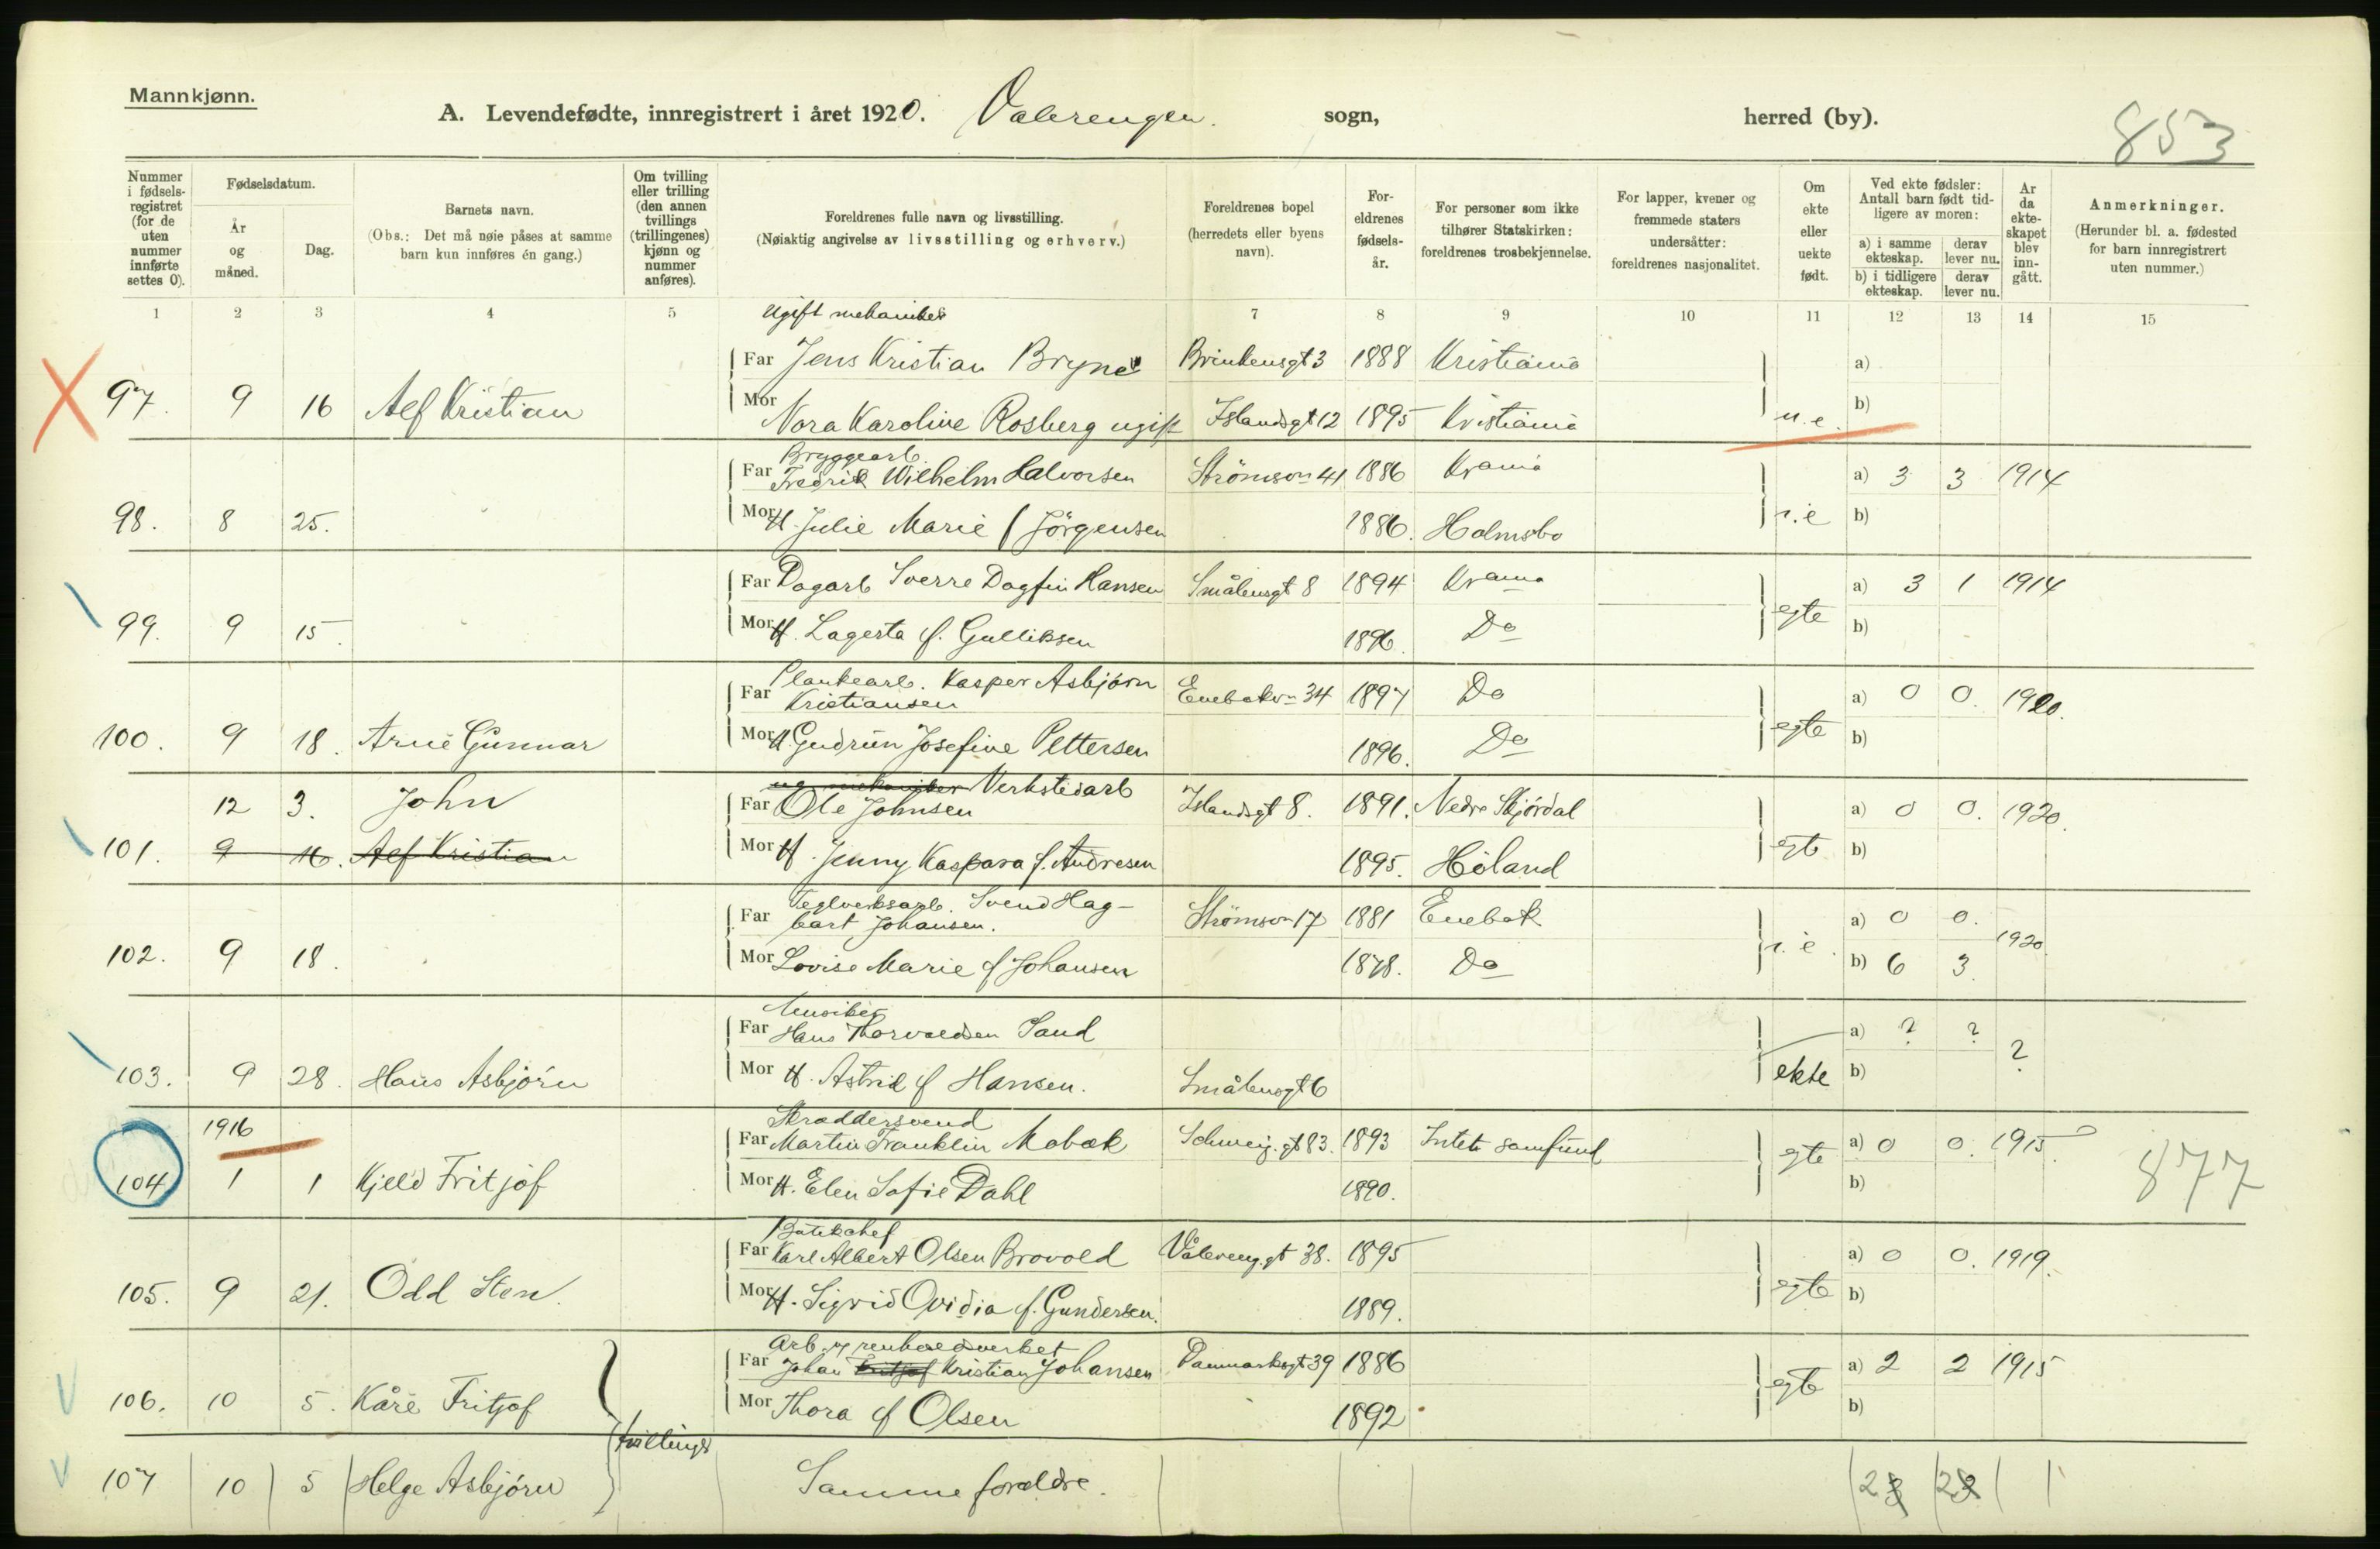 Mannkjønn.
A. Levendefødte, innregistrert i året 1920. Valerengen. sogn, herred (by).
853
Nummer i fødsels-registret (for de uten nummer innførte settes 0).
Fødselsdatum.
År og måned.
Dag.
Barnets navn.
(Obs.: Det må nøie påses at samme barn kun innføres én gang.)
Om tvilling eller trilling (den annen tvillings (trillingenes) kjønn og nummer anføres).
Foreldrenes fulle navn og livsstilling.
(Nøiaktig angivelse av livsstilling og erhverv.)
Foreldrenes bopel (herredets eller byens navn).
For-eldrenes fødsels-år.
For personer som ikke tilhører Statskirken: foreldrenes trosbekjennelse.
For lapper, kvener og fremmede staters undersåtter: foreldrenes nasjonalitet.
Om ekte eller uekte født.
Ved ekte fødsler: Antall barn født tid-ligere av moren:
a) i samme ekteskap. derav lever nu.
b) i tidligere ekteskap. derav lever nu.
Ar da ekte-skapet blev inn-gått.
Anmerkninger.
(Herunder bl. a. fødested for barn innregistrert uten nummer.)
1 2 3 4 5 7 8 9 10 11 12 13 14 15
Ugift mekaniker
Far Jens Kristian Bryne Brinkensgt 3 1888 Kristiania a)
97. 9 16 Alf Kristian
Mor Nora Karoline Rosberg ugift Islandsgt 12 1895 Kristiania u.e. b)
Bryggearb.
Far Fredrik Wilhelm Halvorsen Strömsv 41 1886 Krania a) 3 3 1914
98. 8 25.
Mor H. Julie Marie f Jörgensen 1886. Holmsbo b)
Far Dagarb Sverre Dagfin Hansen Smålensgt 8 1894 Krania a) 3 1 1914
99. 9 15.
Mor H. Lagerta f. Gulliksen 1896. Do egte b)
Plankearb. Kasper Asbjørn
Far Kristiansen Enebakv 34 1897 Do a) 0 0. 1920.
100. 9 18. Arne Gunnar
Mor H Gudrun Josefine Pettersen 1896. Do egte b)
ug mekaniker Verkstedarb
12 3. John
Far Ole Johnsen Islandsgt 8. 1891. Nedre Stjørdal a) 0 0. 1920.
101. 9 16. Alf Kristian
Mor H. Jenny Kaspara f. Andresen 1895. Höland b)
Teglverksarb. Svend Hag-
Far bart Johansen. Strömsv 17 1881 Enebak a) 0 0.
102. 9 18. 1920
Mor Lovise Marie f Johansen 1878. Do b) 6 3.
Musiker
Far Hans Thorvaldsen Sand a) ? ?
103. 9 28. Hans Asbjørn ?
Mor H. Astrid f Hansen. Smålensgt 6 ekte b)
1916
Skræddersvend
Far Martin Franklin Mobæk Schweig.gt 83. 1893 Intet samfund a) 0 0. 1915.
104 1 1 Kjeld Fritjof egte
877
Mor H. Elen Sofie Dahl 1890. b)
Butikchef
Far Karl Albert Olsen Brovold Vålereng.gt 38. 1895 a) 0 0. 1919.
105. 9 21. Odd Sten.
Mor H. Sigrid Ovidia f. Gundersen. 1889. egte b)
Arb. v renholdsverket
Far Johan Fritjof Kristian Johansen Danmarksgt 39 1886 a) 2 2 1915
106. 10 5. Kåre Fritjof egte
Mor Thora f Olsen 1892 b)
tvillinger
107 10 5 Helge Asbjørn Samme foreldre. 2 2